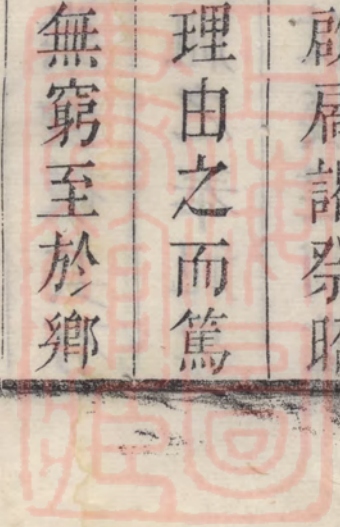 啟居謁祭昭
理由之而篤
無窮至於鄉